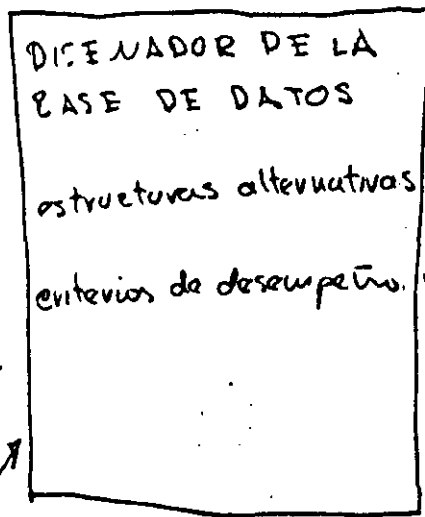 DISEÑADOR DE LA
BASE DE DATOS
estructuras alternativas
criterios de desempeño.